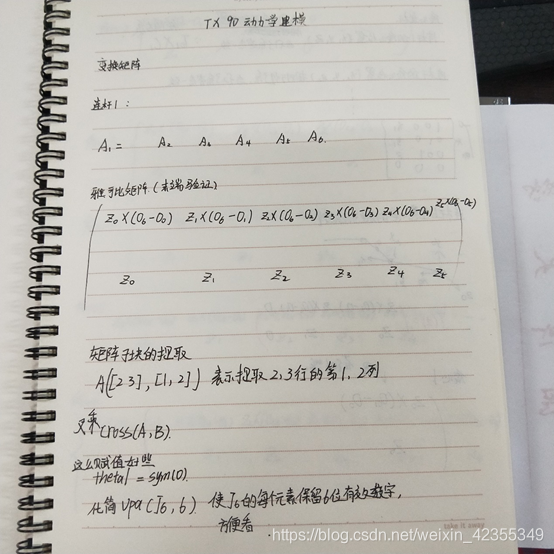 TX 90 动力学建模
变换矩阵
连杆1:
A₁= A₂ A₃ A₄ A₅ A₆
雅可比矩阵(末端验证)
Z₀×(O₆-O₀) Z₁×(O₆-O₁) Z₂×(O₆-O₂) Z₃×(O₆-O₃) Z₄×(O₆-O₄) Z₅×(O₆-O₅)
Z₀ Z₁ Z₂ Z₃ Z₄ Z₅
矩阵子块的提取
A([2 3],[1,2]) 表示提取2,3行的第1、2列
叉乘cross(A,B).
这么赋值好些
theta1=sym(0).
化简 vpa(J6,6) 使J6的每个元素保留6位有效数字,
方便看
take it away
https://blog.csdn.net/weixin_42355349